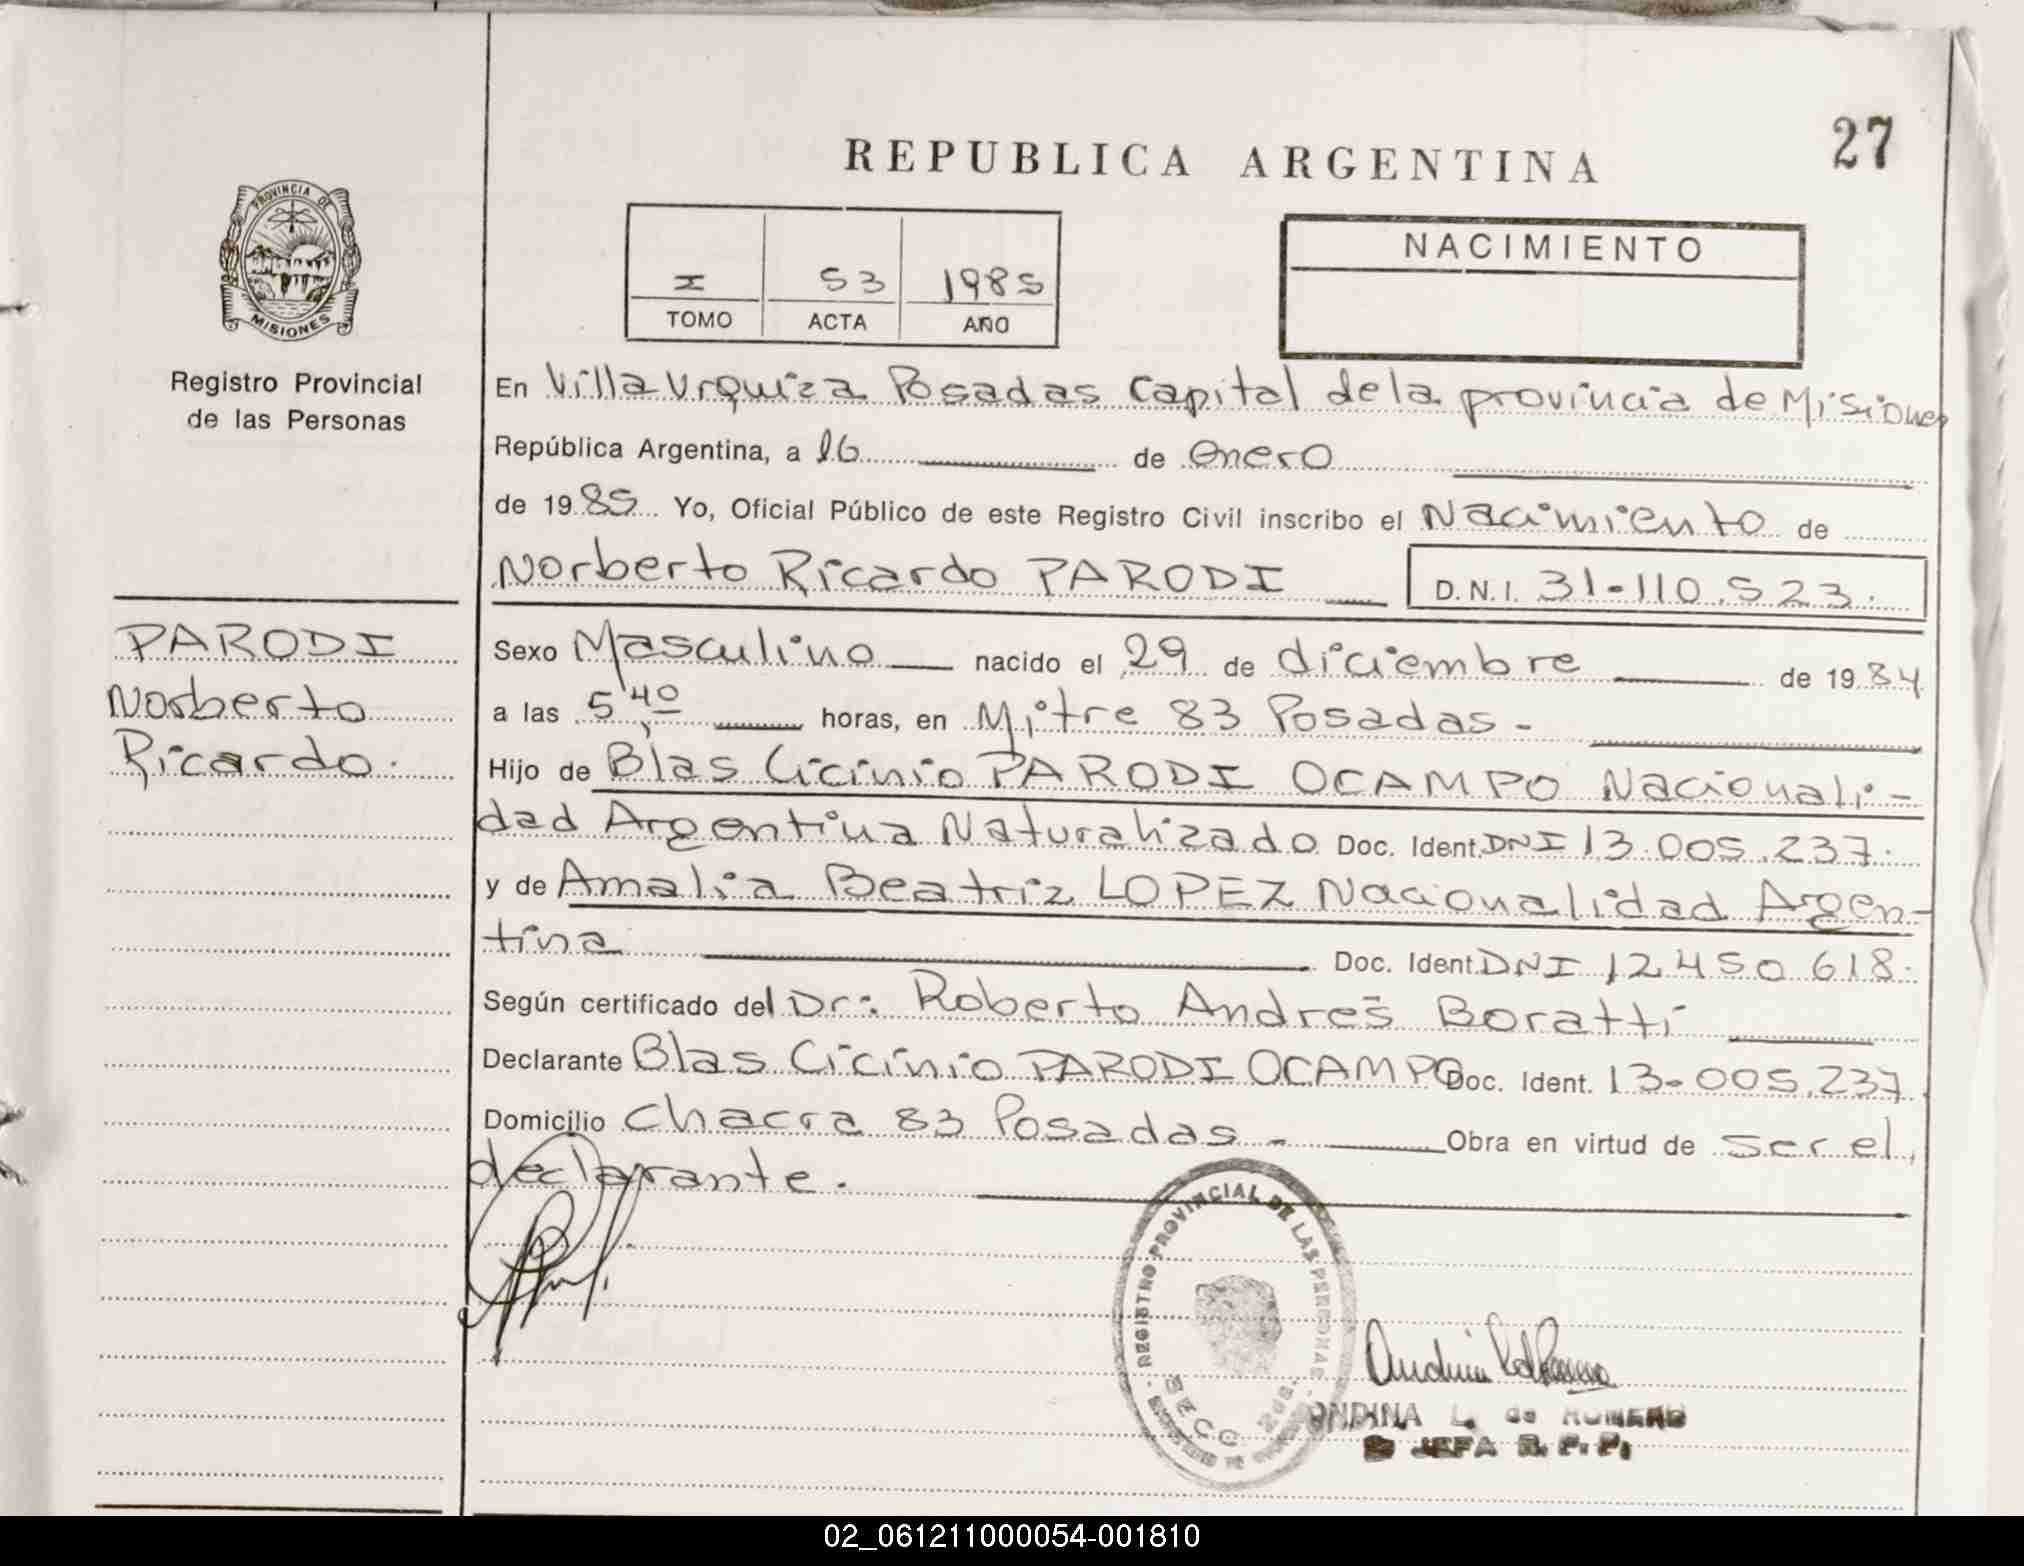 27
REPUBLICA ARGENTINA
PROVINCIA DE
MISIONES
Registro Provincial
de las Personas
I 53 1985
TOMO ACTA AÑO
NACIMIENTO
En Villa Urquiza Posadas Capital de la provincia de Misiones
República Argentina, a 16 de enero
de 1985 Yo, Oficial Público de este Registro Civil inscribo el Nacimiento de
Norberto Ricardo PARODI D.N.I. 31-110.523.
PARODI
Norberto
Ricardo.
Sexo Masculino nacido el 29 de diciembre de 1984
a las 5,40 horas, en Mitre 83 Posadas -
Hijo de Blas Cicinio PARODI OCAMPO Nacionali-
dad Argentina Naturalizado Doc. Ident. DNI 13.005.237.
y de Amalia Beatriz LOPEZ Nacionalidad Argen-
tina Doc. Ident. DNI 12450618.
Según certificado del Dr: Roberto Andrés Boratti
Declarante Blas Cicinio PARODI OCAMPO Doc. Ident. 13-005.237
Domicilio Chacra 83 Posadas - Obra en virtud de ser el
declarante.
REGISTRO PROVINCIAL DE LAS PERSONAS
SECC
ONDINA L. de ROMERO
JEFA R. P. P.
02_061211000054-001810